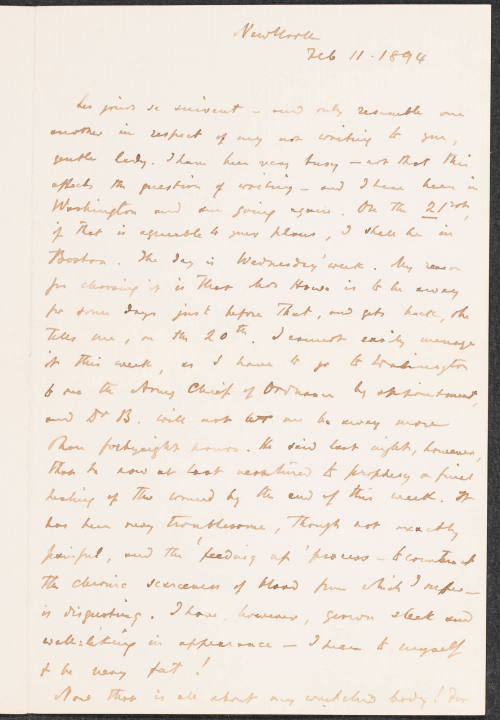 New York
Feb 11. 1894
Les jours se suivent – and only resemble one
another in respect of my not writing to you,
gentle lady. I have been very busy – not that this
affects the question of writing – and I have been in
Washington and am going again. On the 21st,
if that is agreeable to your plans, I shall be in
Boston. The day is Wednesday week. My reason
for choosing it is that Mrs Howe is to be away
for some days just before that, and gets back, she
tells me, on the 20th. I cannot easily manage
it this week, as I have to go to Washington
to see the Army Chief of Ordnance by appointment,
and Dr B. will not let me be away more
than fortyeight hours. He said last night, however,
that he now at last ventured to prophesy a final
healing of the wound by the end of this week. It
has been very troublesome, though not exactly
painful, and the 'feeding up' process – to counteract
the chronic scarceness of blood from which I suffer –
is disgusting. I have, however, grown sleek and
well-liking in appearance – I seem to myself
to be very fat!
Now that is all about my wretched body! For